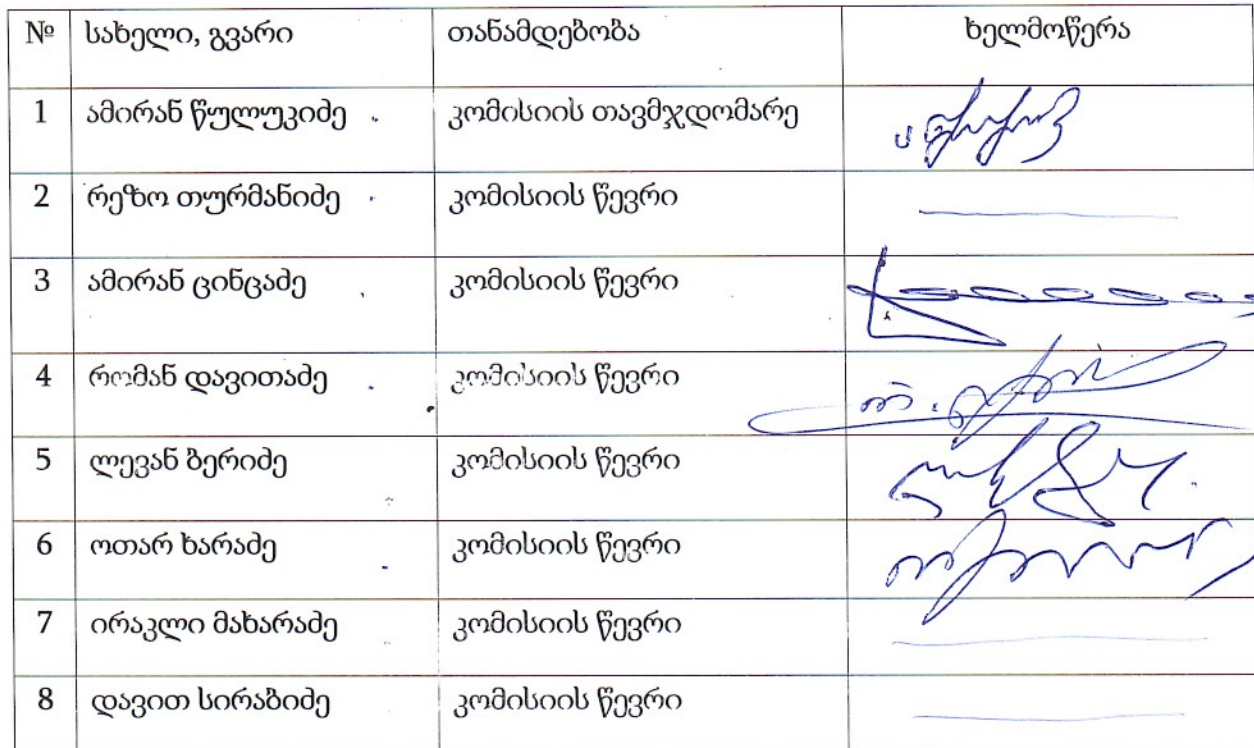 № სახელი, გვარი თანამდებობა ხელმოწერა
1 ამირან წულუკიძე კომისიის თავმჯდომარე
2 რეზო თურმანიძე კომისიის წევრი
3 ამირან ცინცაძე კომისიის წევრი
4 რომან დავითაძე კომისიის წევრი
5 ლევან ბერიძე კომისიის წევრი
6 ოთარ ხარაძე კომისიის წევრი
7 ირაკლი მახარაძე კომისიის წევრი
8 დავით სირაბიძე კომისიის წევრი